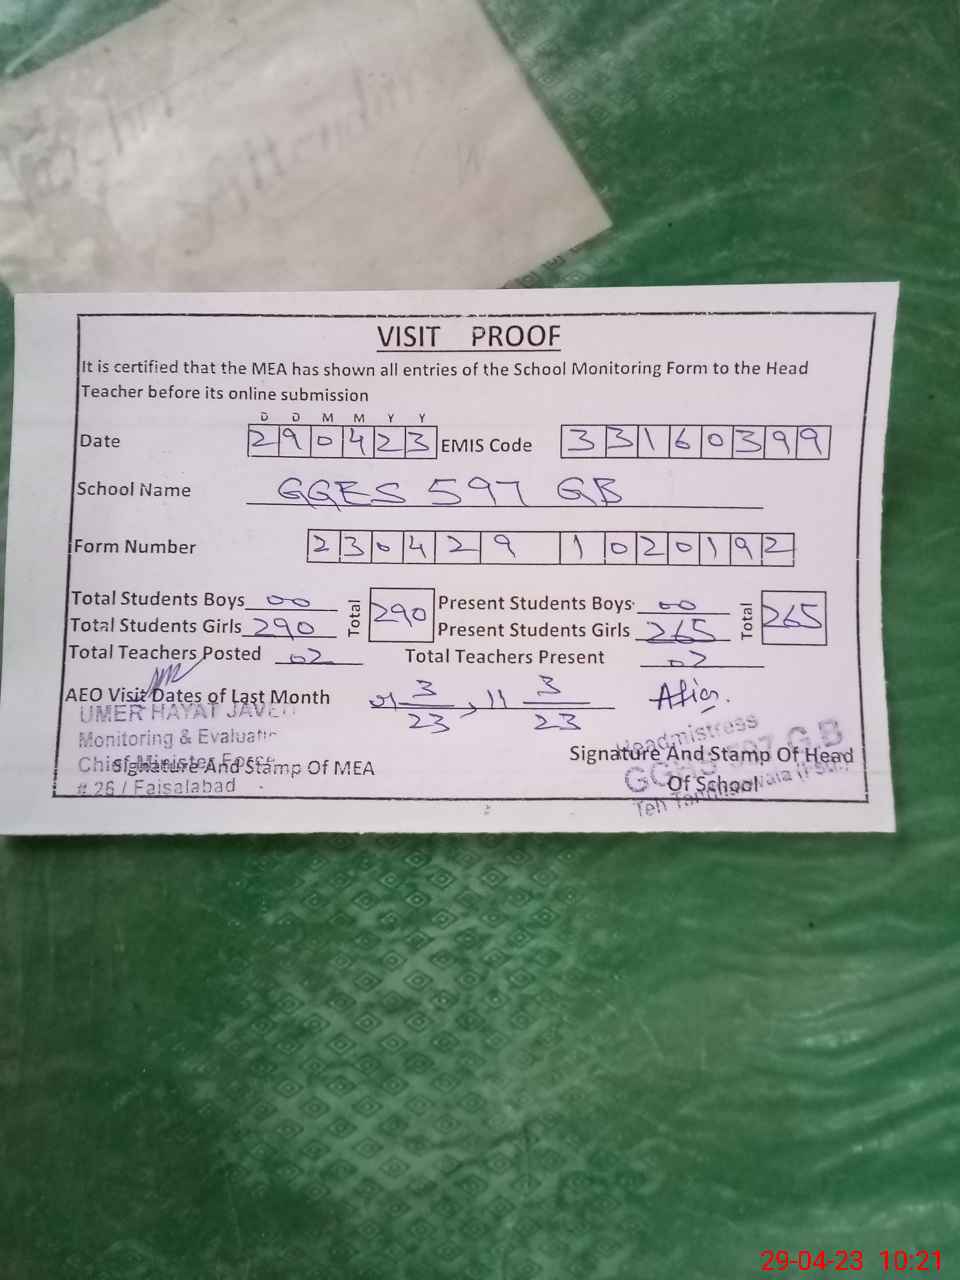 VISIT PROOF
It is certified that the MEA has shown all entries of the School Monitoring Form to the Head
Teacher before its online submission
D D M M Y Y
Date 290423 EMIS Code 33160399
School Name GGES 597 GB
Form Number 2304291020192
Total Students Boys 00 Total 290 Present Students Boys 00 Total 265
Total Students Girls 290 Present Students Girls 265
Total Teachers Posted 02 Total Teachers Present 02
AEO Visit Dates of Last Month 3/23, 11 3/23
UMER HAYAT JAVED
Monitoring & Evaluatin
Chief Minister
Signature And Stamp Of MEA
# 26 / Faisalabad
Headmistress
Signature And Stamp Of Head
597 G.B
Of School
Teh
29-04-23 10:21